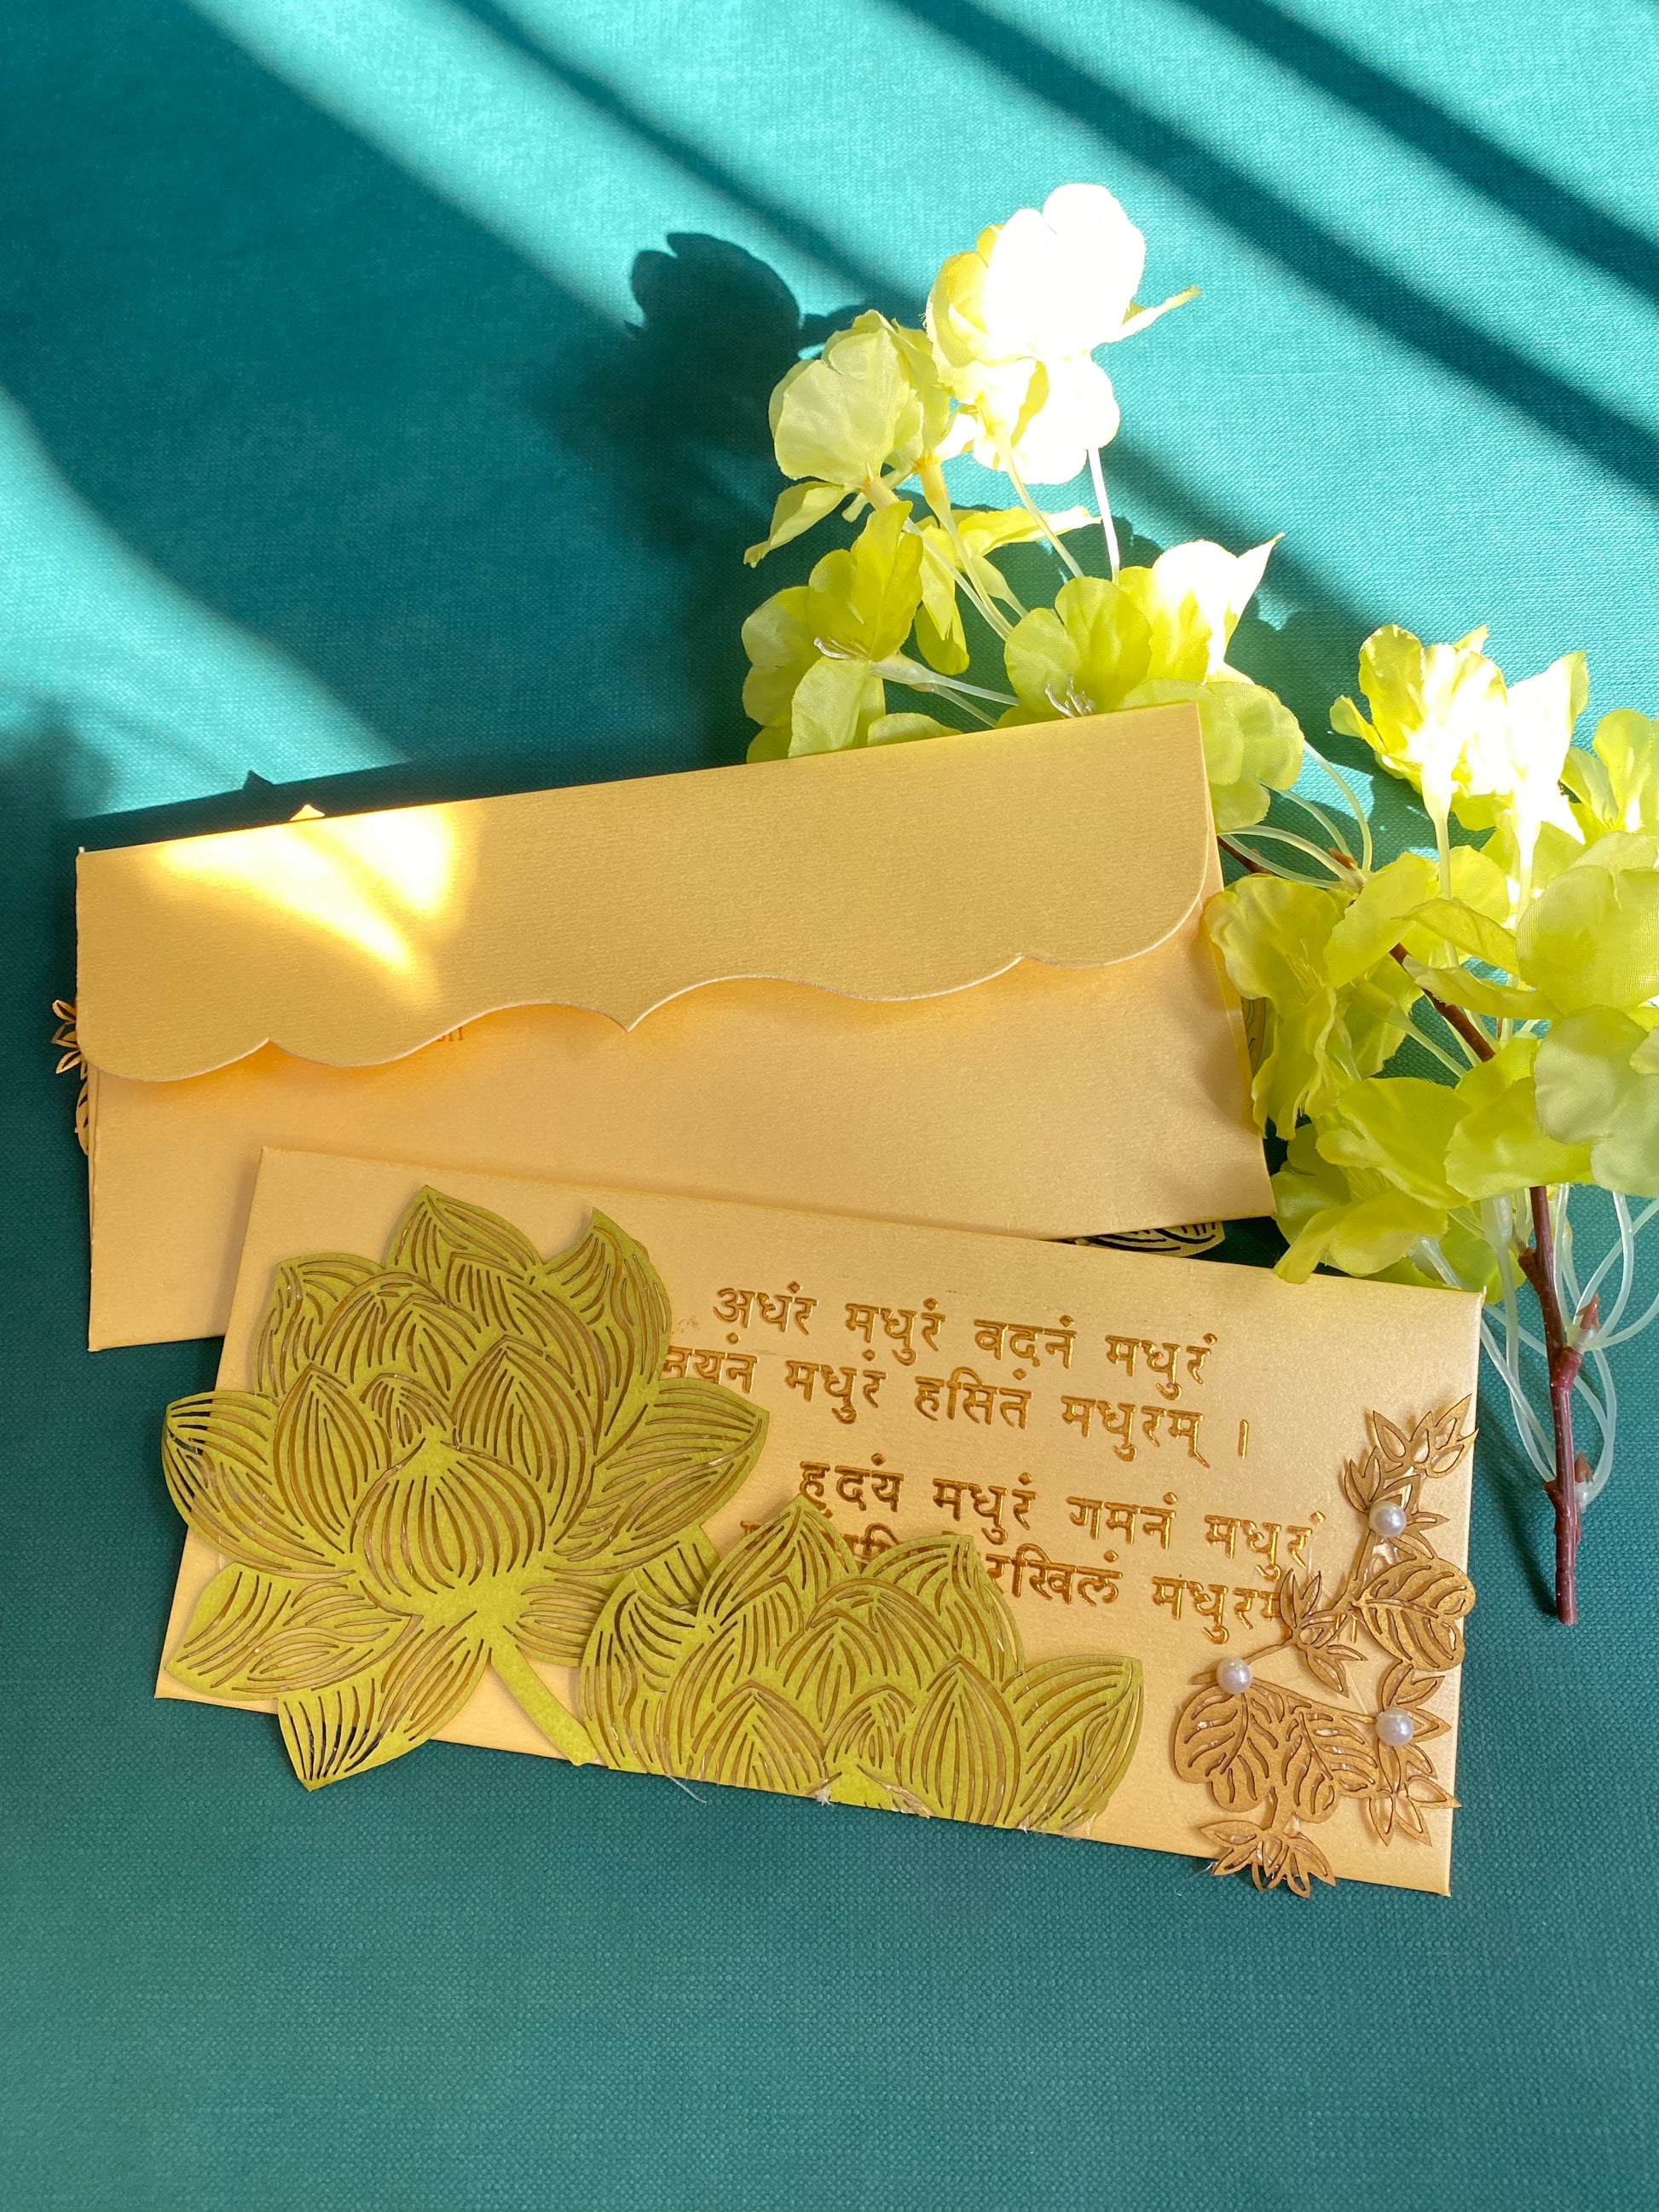 अधंर मधुरं वदनं मधुरं
नयनं मधुरं हसितं मधुरम् ।
हृदयं मधुरं गमनं मधुरं
रखिलं मधुरम